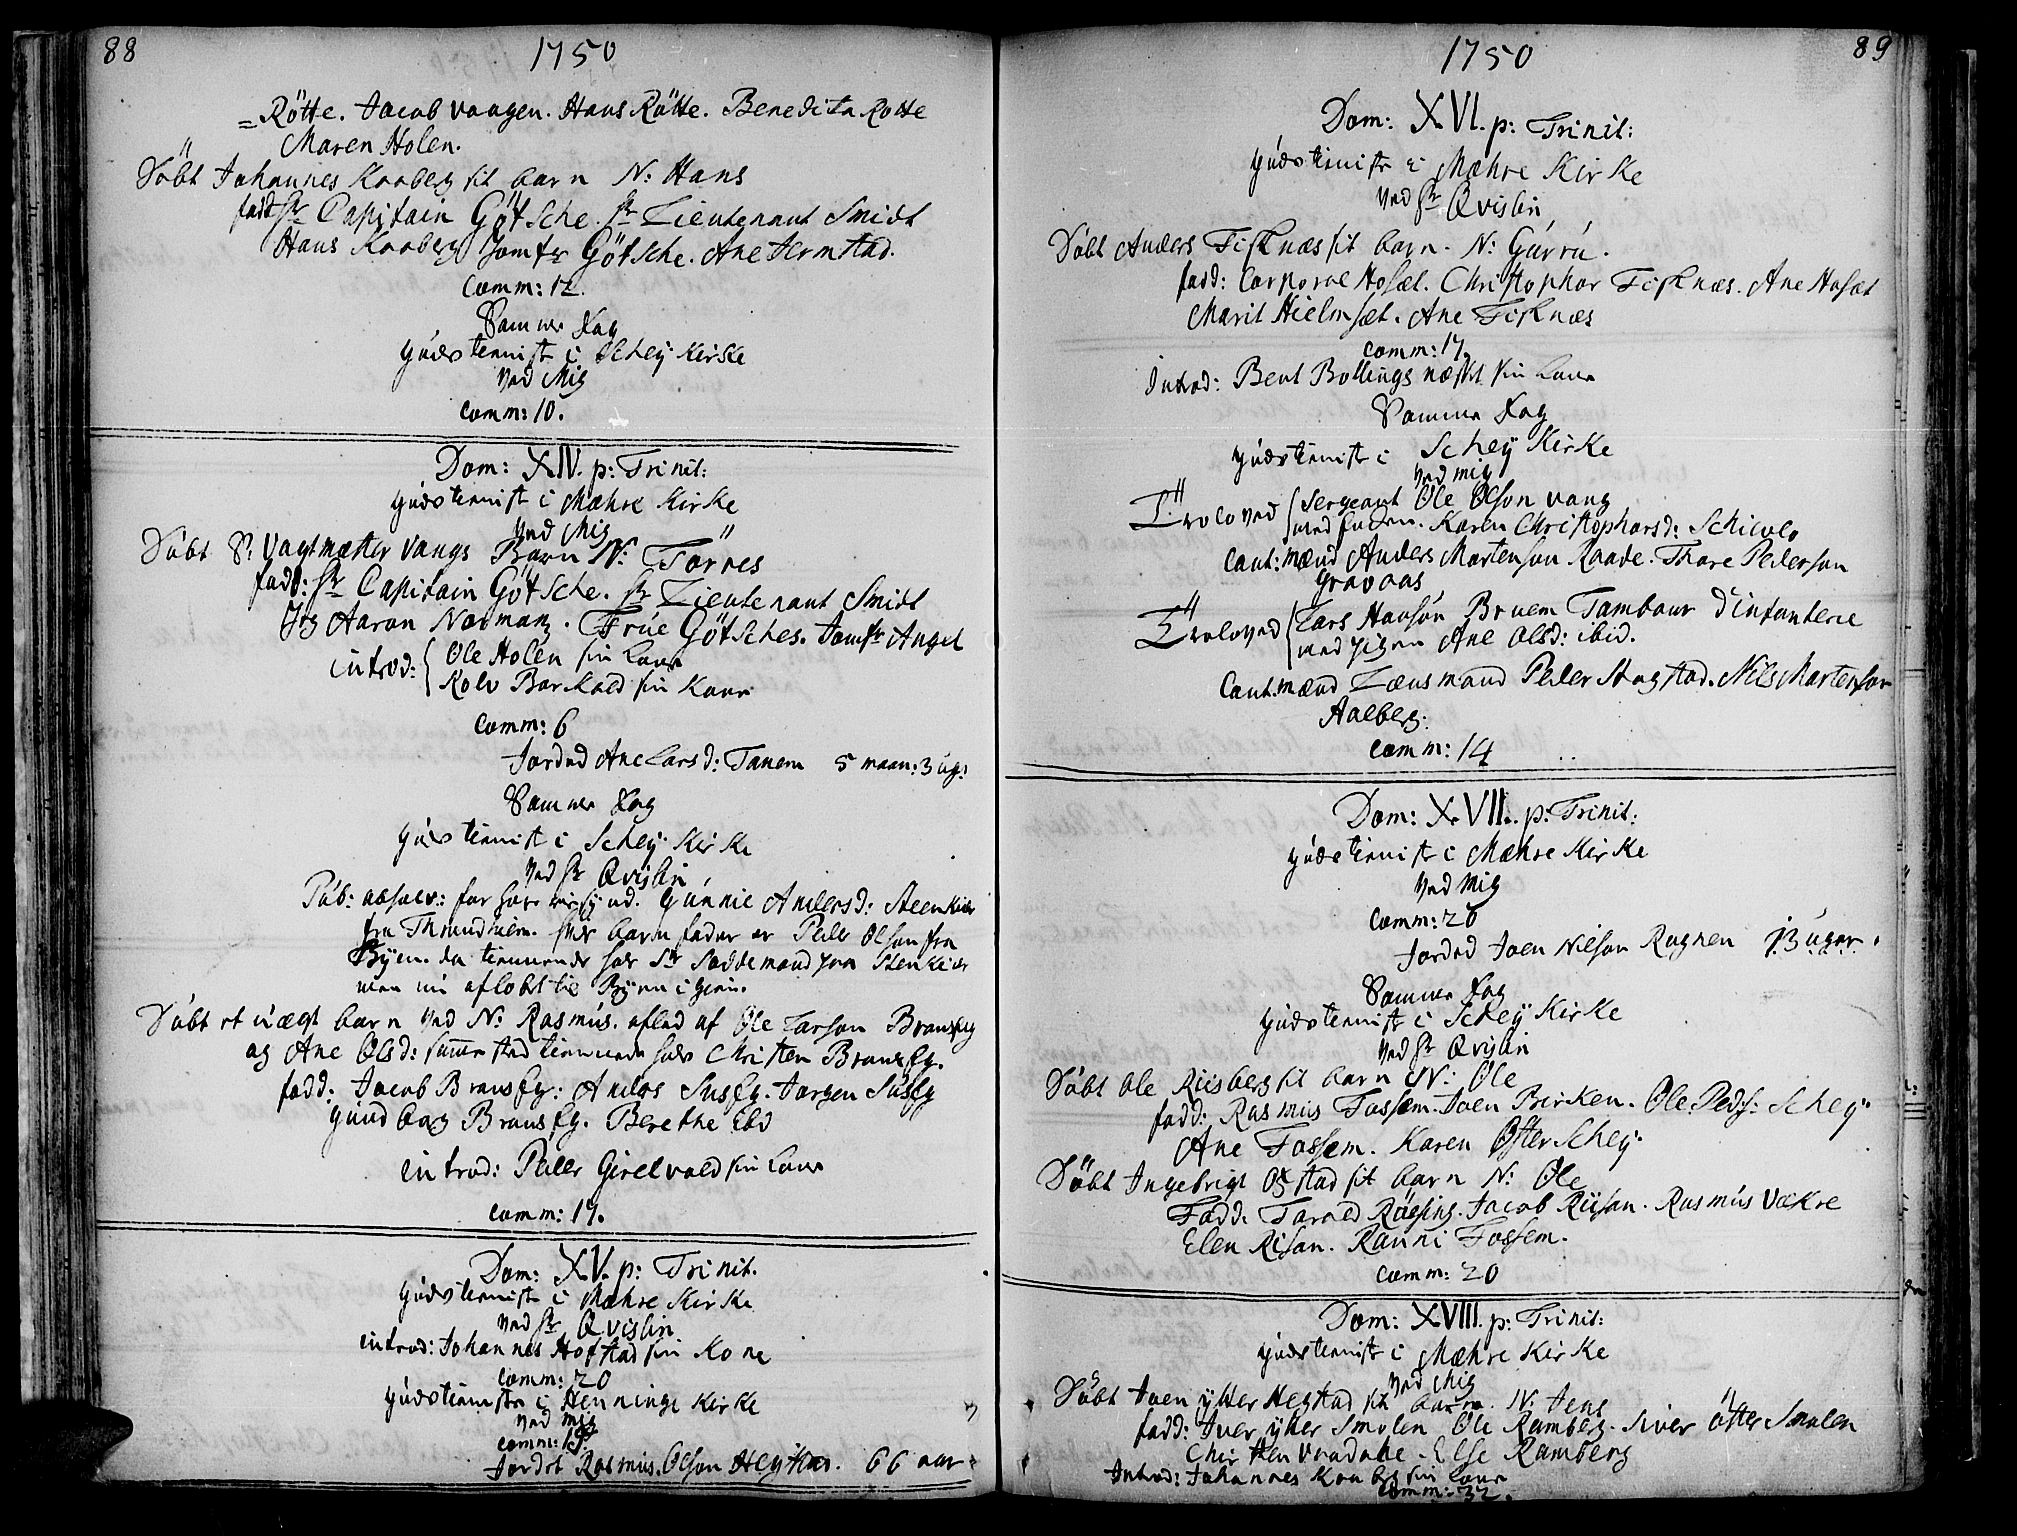 88
1750
= Rötte. Jacob Vaagen. Hans Rötte. Benedicta Rotte
Maren Holen.
Döbt Johannes Kaaberg sit barn N: Hans
fadd Hr Capitain Götsche. Hr Lieutenant Smidt
Hans Kaaberg Jomfr Götsche. Ane Hermstad.
Comm: 12.
Samme Dag
Gudstienist i Schey Kirke
Ved Mig
Comm: 10.
Dom: XIV. p: Trinit:
Gudstienist i Mæhre Kirke
Ved Mig
Döbt Sr Vagtmæster Vangs Barn N: Törres
fadd: Hr Capitain Götsche. Hr Lieutenant Smidt
Jeg Aaron Normann. Frue Götsches. Jomfr Angel
introd: Ole Holen sin Kone
Rolv Barkald sin Kone
Comm: 6
Jorded Ane Larsd: Tanem 5 maan: 3 ug:
Samme Dag
Gudstienist i Schey Kirke
Ved Hr Qvislin
Pub: absolv: for Gunnie Andersd: Steenkier
fra Thrundhiem. barnefader er Peder Olson fra
Byen. da tiennende hos Sr Soddemand paa Stenkier
men nu afløbet til Byen igien.
Döbt et uægt barn ved N: Rasmus. aflad af Ole Larson Bransfg
og Ane Olsd: samme sted tiennende hos Christen Bransfg.
fadd: Jacob Bransfg: Anders Susfg. Jorgen Susfg
Gundborg Bransfg. Berethe Ebd
introd: Peder Girelvald sin Kone
Comm: 17.
Dom: XV. p: Trinit.
Gudstienist i Mæhre Kirke
Ved Hr Qvislin
introd: Johannes Hofstad sin Kone
Comm: 20
Gudstieniste i Henninge Kirke
Ved mig
Comm: 19
Jordet Rasmus Olson Hegstad. 66 aar
89
1750
Dom: XVI. p: Trinit:
Gudstienist i Mæhre Kirke
Ved Hr Qvislin
Döbt Anders Fisknæs sit barn. N: Gurru.
fadd: Corporal Hosæt. Christopher Fisknæs. Ane Hosæt
Marit Hielmsæt. Ane Fisknæs
Comm: 17.
Introd: Bent Bollingsnæsset sin Kone
Samme Dag
Gudstienist i Schey Kirke
Ved mig
Troloved Sergeant Ole Olson Vang
med Karen Christophersd: Schievlo
Caut: mænd Anders Mortenson Raade. Thore Pederson
Gravaas
Troloved Lars Hanson Bruem Tambour d'infanterie
med pigen Ane Olsd: ibid.
Caut. mænd Lænsmand Peder Hagstad. Nils Mortenson
Aalberg.
Comm: 14
Dom: XVII. p: Trinit:
Gudstienist i Mæhre Kirke
Ved Mig
Comm: 20
Jorded Joen Nilson Rognen 13 uger.
Samme Dag
Gudstienist i Schey Kirke
Ved Hr Qvislin
Döbt Ole Riisberg sit barn N: Ole
fadd: Rasmus Fossem. Joen Birken. Ole Peds: Schey
Ane Fossem. Karen Øster Schey.
Döbt Ingebrigt Ogstad sit barn N: Ole
Fadd. Tarald Röesing. Jacob Riisan. Rasmus Vækre
Elen Risan. Ranni Fossem.
Comm: 20
Dom: XVIII. p: Trinit:
Gudstienist i Mæhre Kirke
Ved Mig
Döbt Joen ytter Hegstad sit barn. N: Jens
fadd: Iver ytter Smolen Ole Ramberg. Siver öfter Smolen
Christen Vaadahl. Else Ramberg
Introd: Johannes Kaaberg sin Kone
Comm: 32.